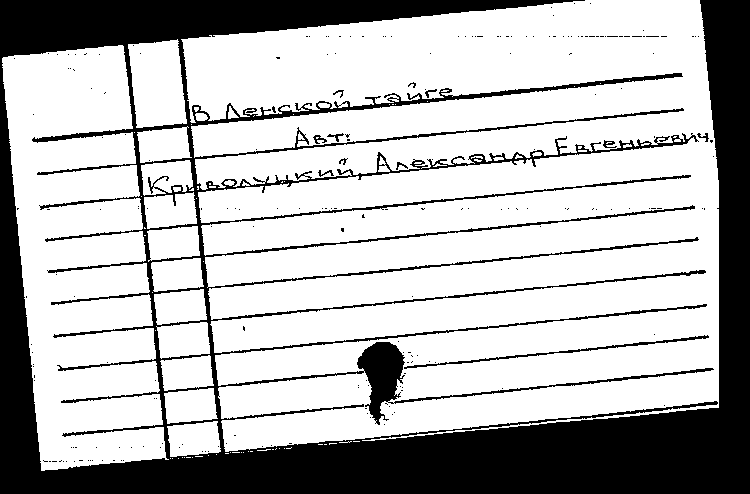 В Ленской тайге
Авт:
Криволуцкий, Александр Евгеньевич.